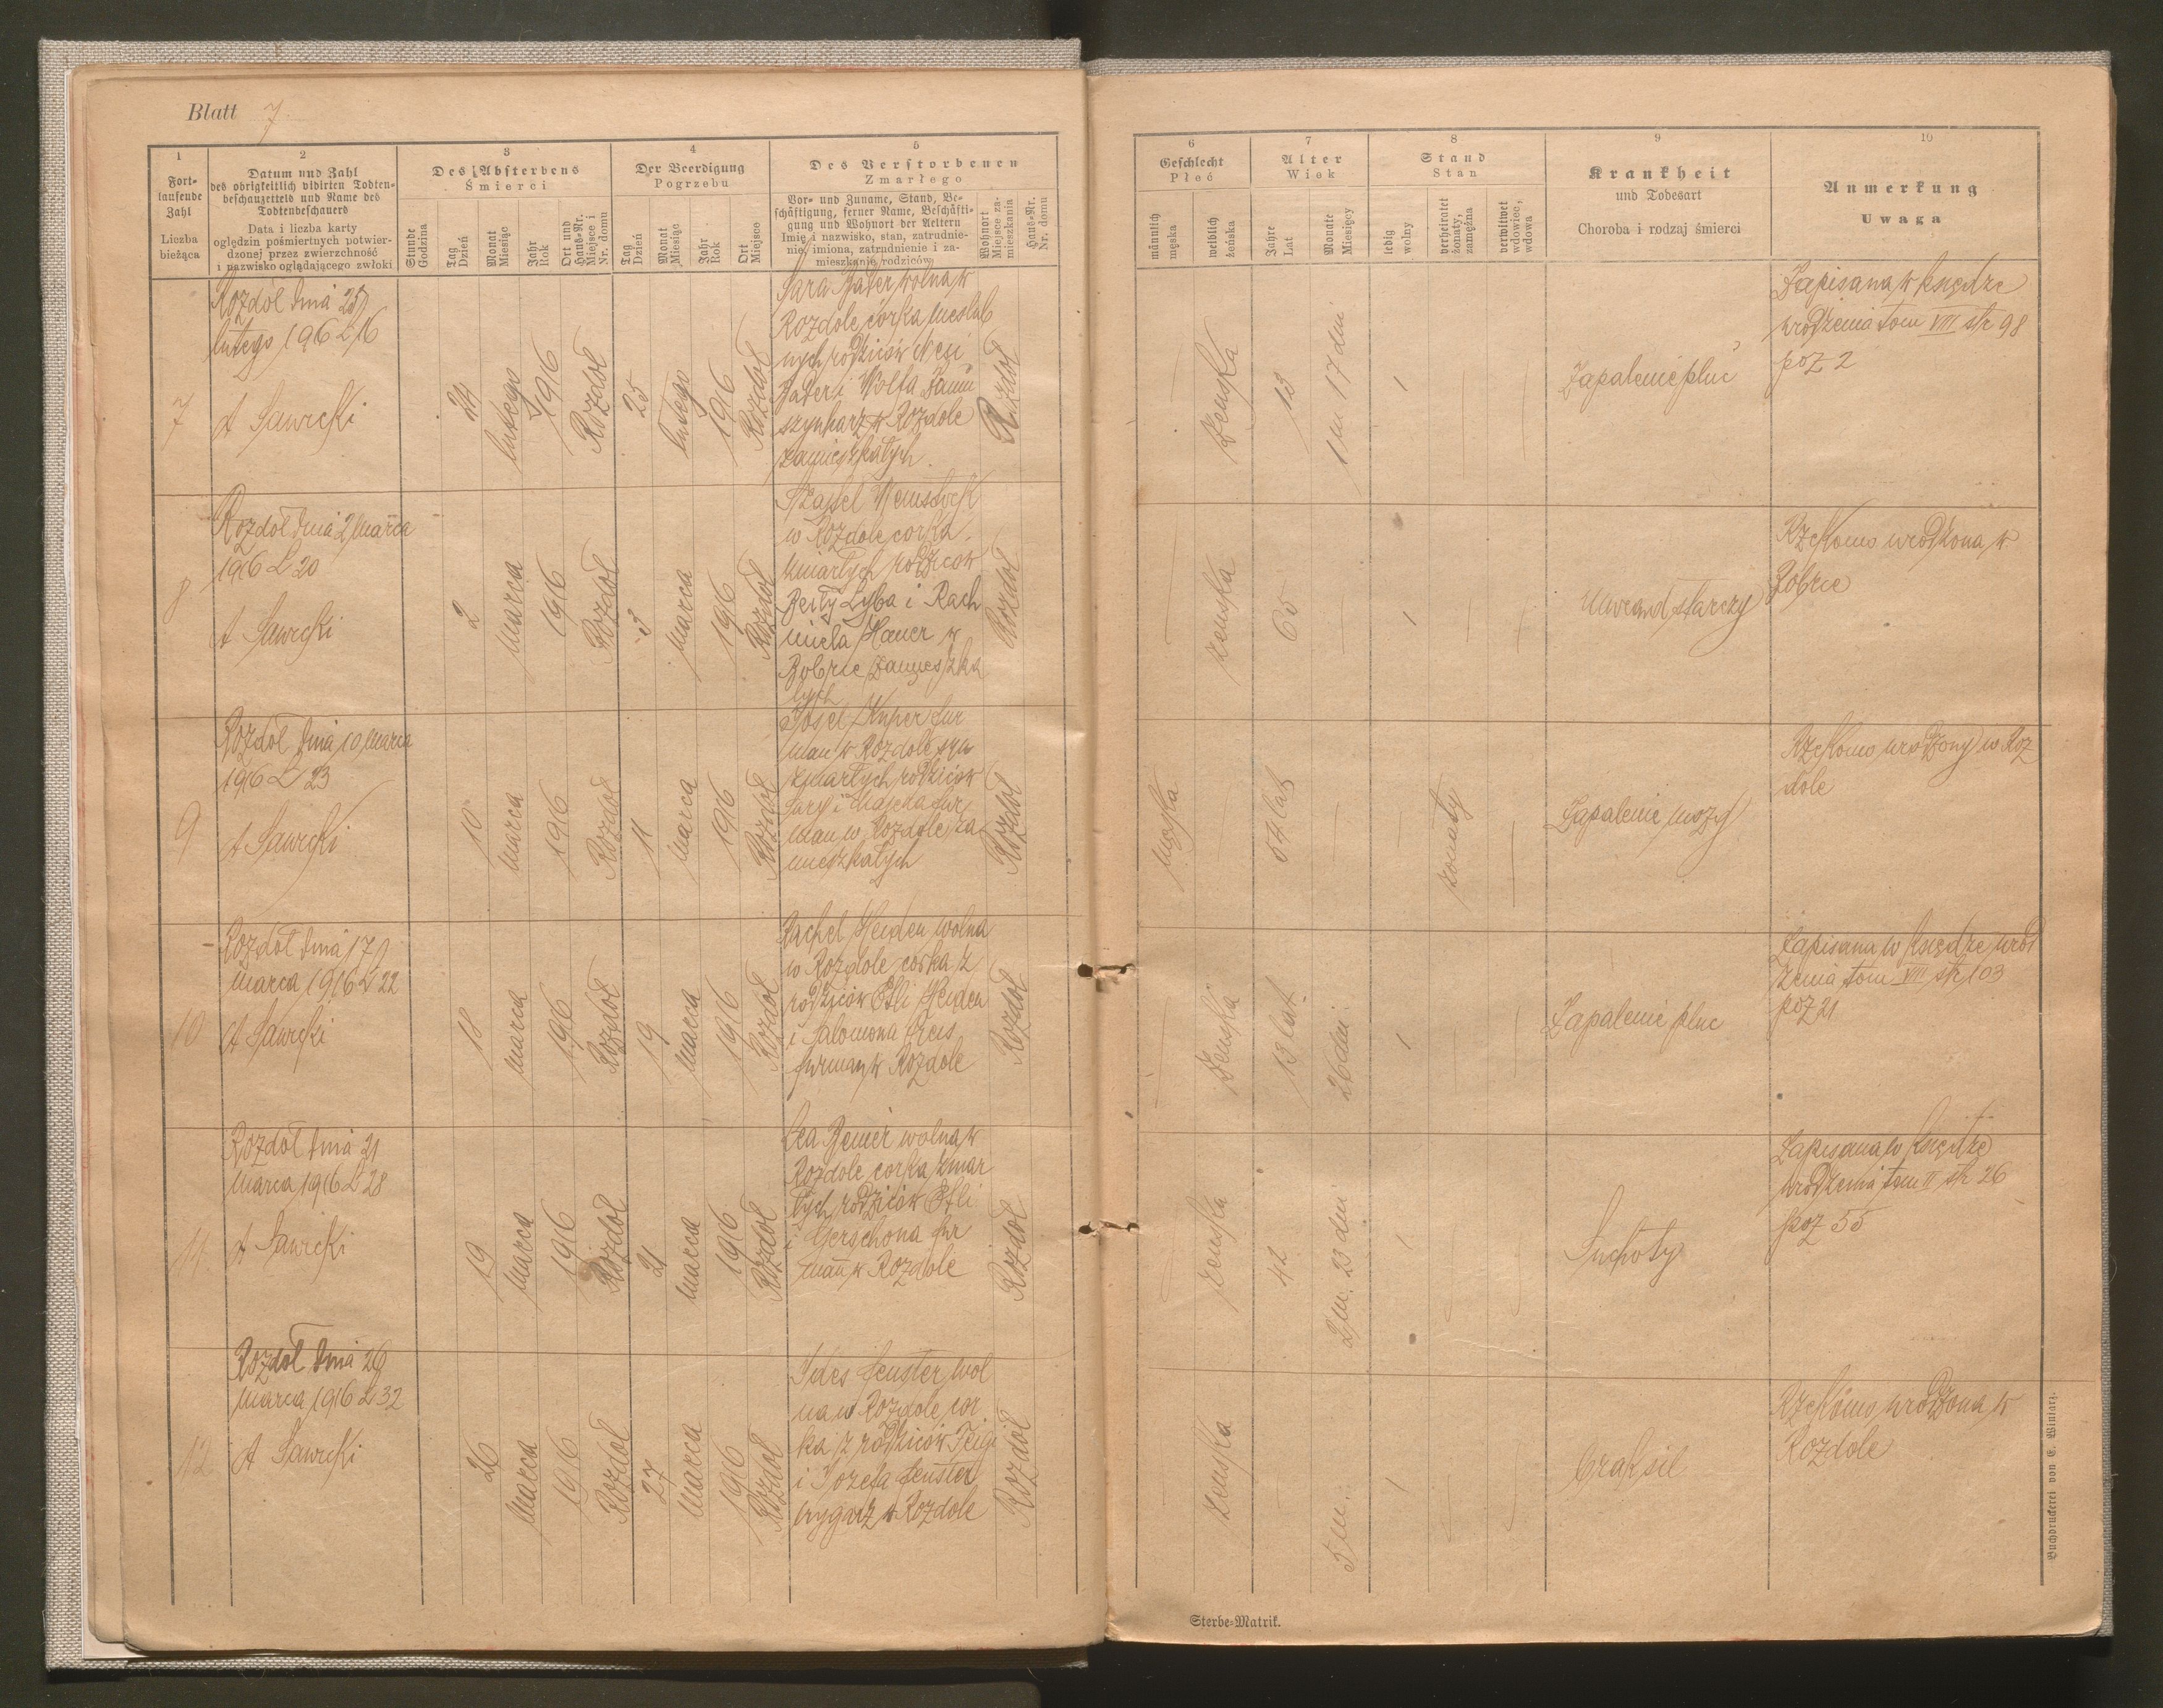 Blatt 7
1
Fort-
laufende
Zahl
Liczba
bieżąca
2
Datum und Zahl
des obrigkeitlich vidirten Todten-
beschauzettels und Name des
Todtenbeschauers
Data i liczba karty
oględzin pośmiertnych potwier-
dzonej przez zwierzchność
i nazwisko oglądającego zwłoki
3
Des Absterbens
Śmierci
Stunde
Godzina
Tag
Dzień
Monat
Miesiąc
Jahr
Rok
Ort und
Haus-Nr.
Miejsce i
Nr. domu
4
Der Beerdigung
Pogrzebu
Tag
Dzień
Monat
Miesiąc
Jahr
Rok
Ort
Miejsce
5
Des Verstorbenen
Zmarłego
Vor- und Zuname, Stand, Be-
schäftigung, ferner Name, Beschäfti-
gung und Wohnort der Aeltern
Imię i nazwisko, stan, zatrudnie-
nie, imiona, zatrudnienie i za-
mieszkanie rodziców
Wohnort
Miejsce za-
mieszkania
Haus-Nr.
Nr. domu
6
Geschlecht
Płeć
männlich
męska
weiblich
żeńska
7
Alter
Wiek
Jahre
Lat
Monate
Miesięcy
8
Stand
Stan
ledig
wolny
verheiratet
żonaty,
zamężna
verwitwet
wdowiec,
wdowa
9
Krankheit
und Todesart
Choroba i rodzaj śmierci
10
Anmerkung
Uwaga
7
Rozdół dnia 25
lutego 1916 L 16
A Sawicki
24
lutego
1916
Rozdół
25
lutego
1916
Rozdół
Sara wolna w
Rozdole córka nieślub
nych rodziców
i Wolfa
szynkarz w Rozdole
zamieszkałych
Rozdół
żeńska
13
1 m 17 dni
1
Zapalenie płuc
Zapisana w księdze
urodzenia tom VIII str 98
poz 2
8
Rozdół dnia 2 marca
1916 L 20
A Sawicki
2
marca
1916
Rozdół
3
marca
1916
Rozdół
w Rozdole corka
zmarłych rodziców
Lyba i Rach
miela w
Bobrce zamieszka
łych
Rozdół
żeńska
65
1
Uwiąd starczy
Rzekomo urodzona w
Bobrce
9
Rozdół dnia 10 marca
1916 L 23
A Sawicki
10
marca
1916
Rozdół
11
marca
1916
Rozdół
Josel Kuper fur
man w Rozdole syn
zmarłych rodziców
Sary i fur
man w Rozdole za
mieszkałych
Rozdół
męska
54 lat
żonaty
Zapalenie mózg
Rzekomo urodzony w Roz
dole
10
Rozdół dnia 17
marca 1916 L 22
A Sawicki
18
marca
1916
Rozdół
19
marca
1916
Rozdół
Rachel Heiden wolna
w Rozdole corka z
rodziców Etli Heiden
i Salomona
furman w Rozdole
Rozdół
żeńska
13 lat
26 dni
1
Zapalenie płuc
Zapisana w księdze urod
zenia tom VIII str 103
poz 21
11
Rozdół dnia 21
marca 1916 L 28
A Sawicki
19
marca
1916
Rozdół
21
marca
1916
Rozdół
Lea wolna w
Rozdole corka zmar
łych rodziców Etli
i Gerschona fur
man w Rozdole
Rozdół
żeńska
42
2 m. 23 dni
1
Suchoty
Zapisana w księdze
urodzenia tom II str 26
poz 55
12
Rozdół dnia 26
marca 1916 L 32
A Sawicki
26
marca
1916
Rozdół
27
marca
1916
Rozdół
Ides Fenster wol
na w Rozdole cor
ka z rodziców Feigi
i Jozefa Fenster
w Rozdole
Rozdół
żeńska
5 m.
1
brak sil
Rzekomo urodzona w
Rozdole
Buchdruckerei von E. Winiarz.
Sterbe-Matrik.